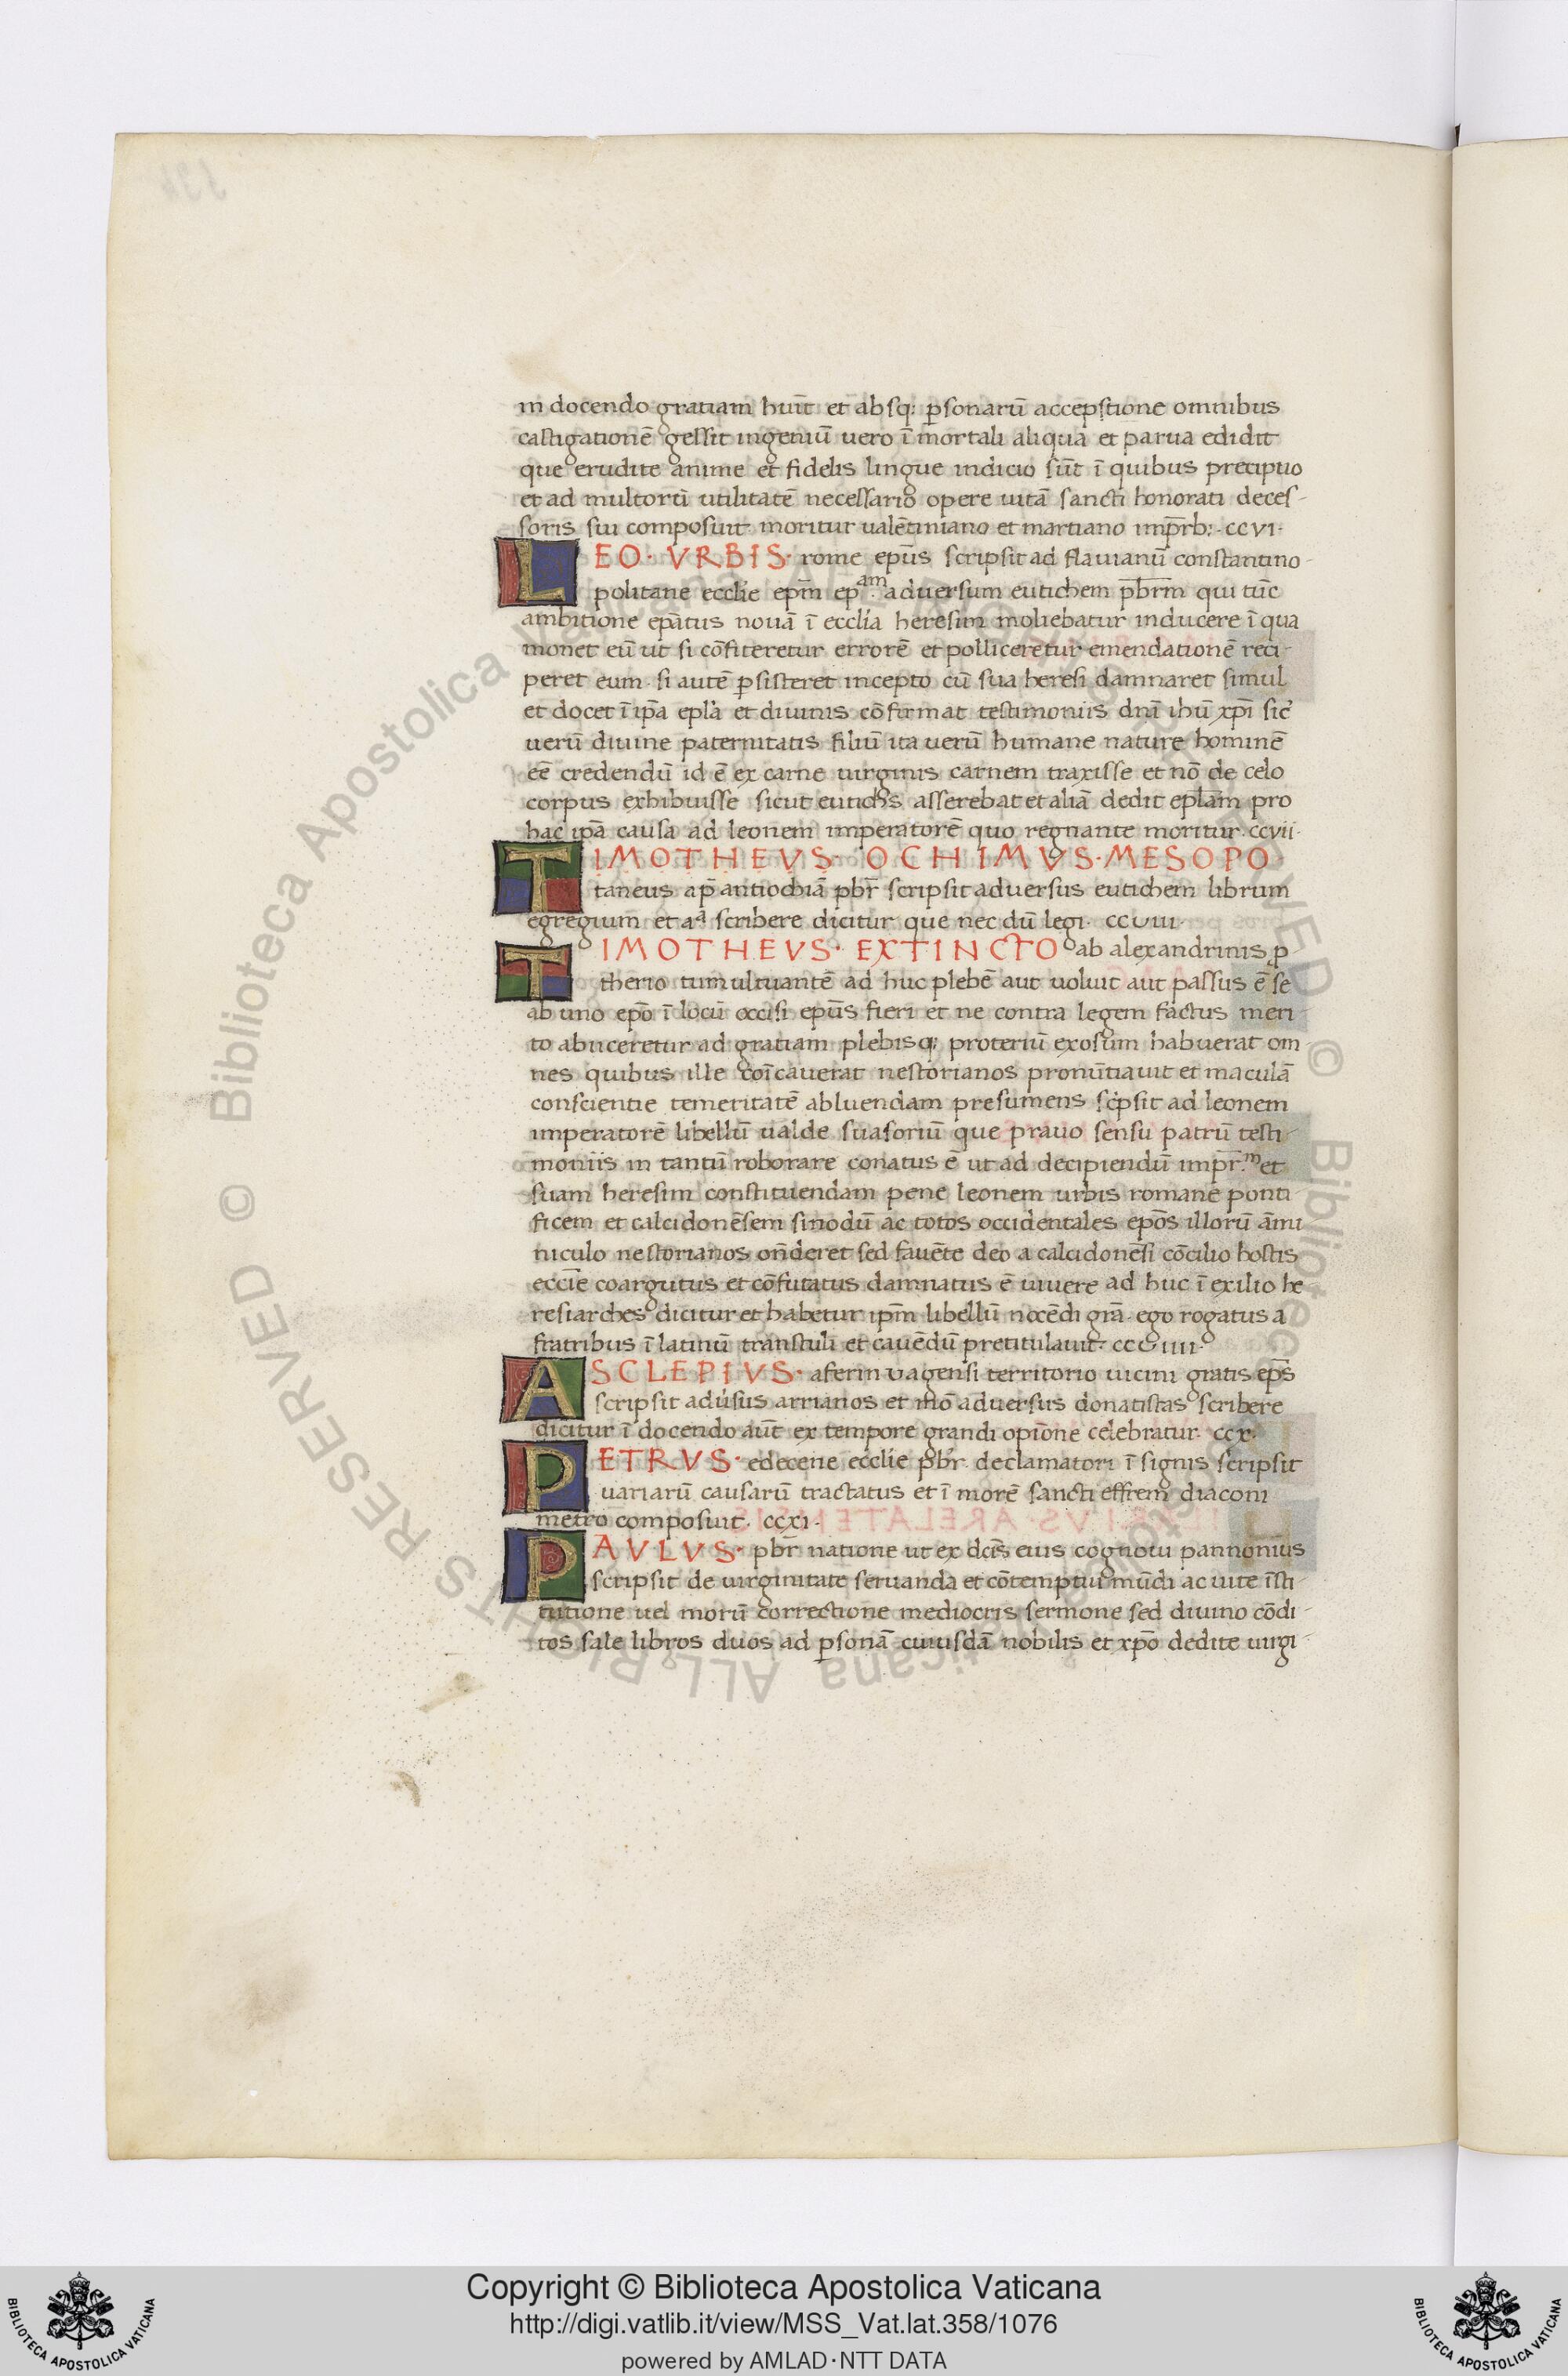 in docendo gratiam huiͥt et absq; ꝑsonarū accepstione omnibus
castigationē gessit ingeniū uero ī mortali aliqua et parua edidit
que erudite anime et fidelis lingue indicio sūt ī quibus precipuo
et ad multorū utilitatē necessario opere uitā sancti honorati deces-
soris sui composuit moritur ualētiniano et martiano imp̄rb; · CCVI ·
LEO · VRBIS · rome ep̄us scripsit ad flauianū constantino-
politane ecclīe ep̄m ep.ᵃᵐ aduersum eutichem p̄brm qui tūc
ambitione ep̄atus nouā ī ecclīa heresim moliebatur inducere ī qua
monet eū ut si cōfiteretur errorē et polliceretur emendationē reci-
peret eum · si autē ꝑsisteret incepto cū sua heresi damnaret simul
et docet ī ip̄a ep̄la et diuinis cōfirmat testimoniis dn̄ī ih̄ū xp̄ī sic
uerū diuine paternitatis filiū ita uerū humane nature hominē
eē credendū id ē ex carne uirginis carnem traxisse et nō de celo
corpus exhibuisse sicut eutichs asserebat et aliā dedit ep̄lam pro
hac ip̄a causa ad leonem imperatorē quo regnante moritur · ccvii ·
TIMOTHEVS · OCHIMVS · MESOPO
taneus ap̄ antiochiā pbr̄ scripsit aduersus eutichem librum
egregium et aᵃ scribere dicitur que nec dū legi · CCVIII ·
TIMOTHEVS · EXTINCTO ab alexandrinis ꝓ-
therio tumultuantē ad huc plebē aut uoluit aut passus ē se
ab uno ep̄o ī locū occisi ep̄us fieri et ne contra legem factus meri-
to abiiceretur ad gratiam plebisq; proteriū exosum habuerat om-
nes quibus ille coīcauerat nestorianos pronūtiauit et maculā
conscientie temeritatē abluendam presumens sc̓psit ad leonem
imperatorē libellū ualde suasoriū que prauo sensu patrū testi-
moniis in tantū roborare conatus ē ut ad decipiendū imp̄r.ᵐ et
suam heresim constituendam pene leonem urbis romane ponti-
ficem et calcidonēsem sinodū ac totos occidentales ep̄os illorū āmi
niculo nestorianos on̄deret sed fauēte deo a calcidonēsi cōcilio hostis
eccīe coargutus et cōfutatus damnatus ē uiuere ad huc ī exilio he-
resiarches dicitur et habetur ip̄m libellū nocēdi grā · ego rogatus a
fratribus ī latinū transtuli et cauēdū pretitulauit · CCVIIII ·
ASCLEPIVS · aferin uagensi territorio uicini gratis ep̄s
scripsit adu̓sus arrianos et mō aduersus donatistas scribere
dicitur ī docendo aūt ex tempore grandi opiōne celebratur · CCX ·
PETRVS · edecene ecclīe pbr̄ declamatori īsignis scripsit
uariarū causarū tractatus et ī morē sancti effrem diaconi
metro composuit · CCXI ·
PAVLVS · pbr̄ natione ut ex dc̄is eius cognoui pannonius
scripsit de uirginitate seruanda et cōtemptui mūdi ac uite īsti-
tutione uel morū correctione mediocris sermone sed diuino cōdi-
tos sale libros duos ad ꝑsonā cuiusdā nobilis et xp̄o dedite uirgi-
Biblioteca Apostolica Vaticana ALL RIGHTS RESERVED ©
Copyright © Biblioteca Apostolica Vaticana
http://digi.vatlib.it/view/MSS_Vat.lat.358/1076
powered by AMLAD·NTT DATA
BIBLIOTECA APOSTOLICA VATICANA
BIBLIOTECA APOSTOLICA VATICANA